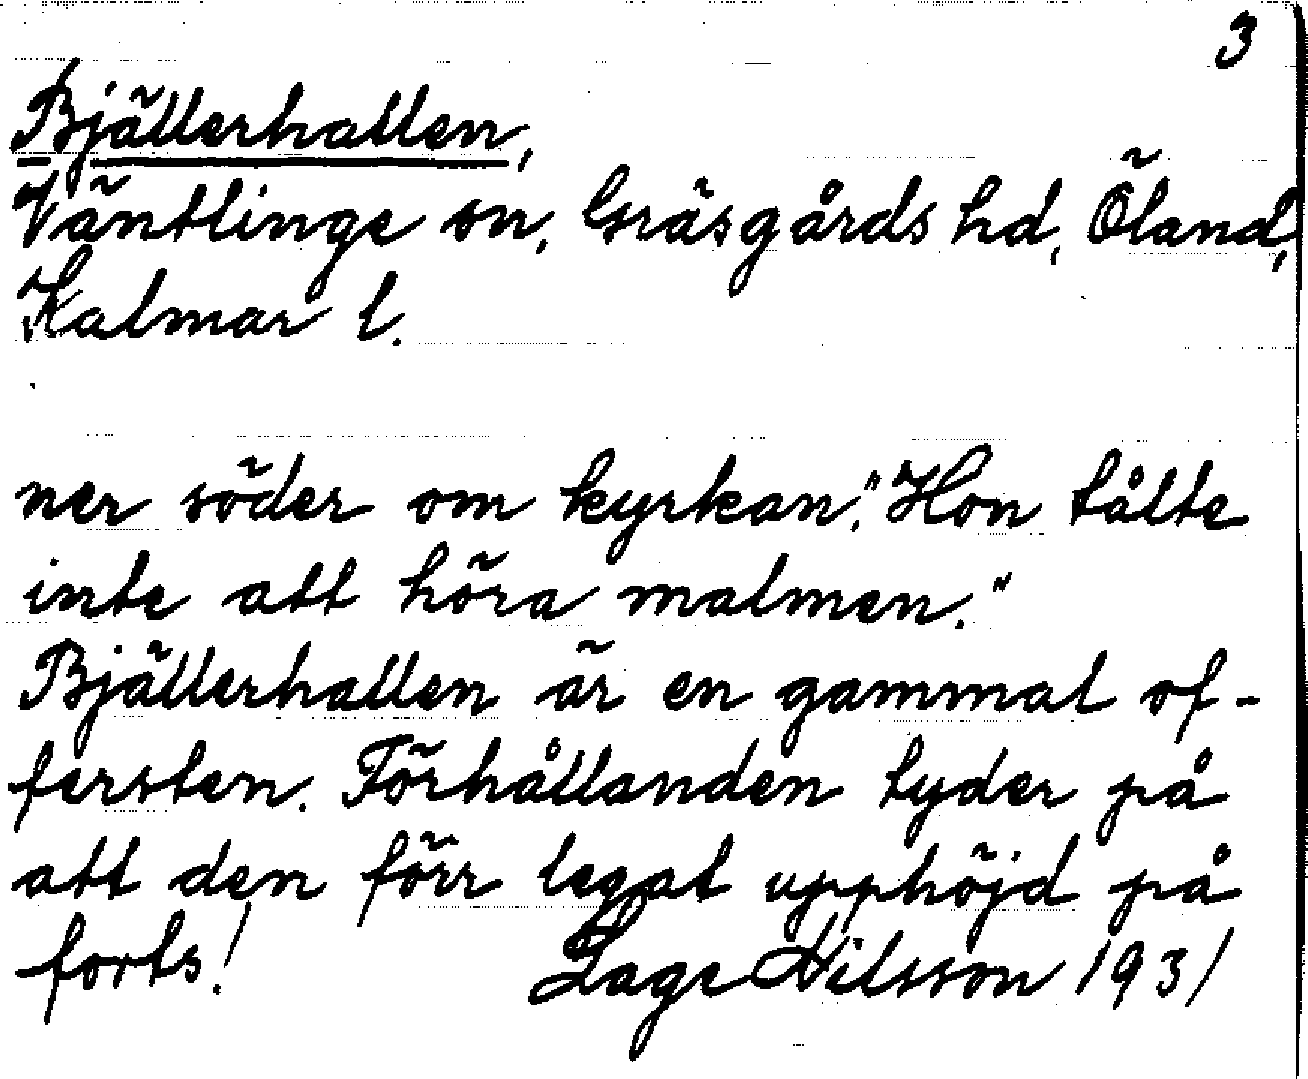 3
Bjällerhallen,
Väntlinge sn, Gräsgårds hd, Öland,
Kalmar l.
ner söder om kyrkan. "Hon tålte
inte att höra malmen."
Bjällerhallen är en gammal of-
fersten. Förhållanden tyder på
att den förr legat upphöjd på
forts! Lage Nilsson 1931